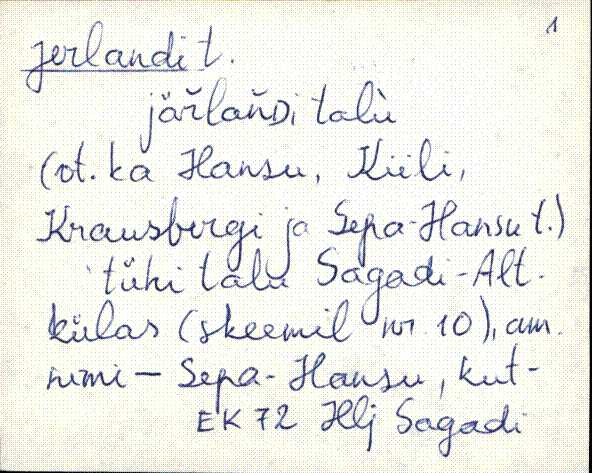 1
Jerlandi t.
jär̆lan̆Di talù
(vt. ka Hansu, Kiili,
Krausbergi ja Sepa-Hansu t.)
tühi talu Sagadi-Alt.
külas (skeemil nr. 10), am.
nimi – Sepa-Hansu, kut-
EK 72 Hlj Sagadi